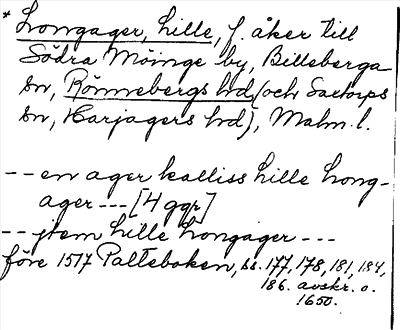 * Longager, Lille, f. åker till
Södra Möinge by, Billeberga
sn, Rönnebergs hd (och Saxtorps
sn, Harjagers hd), Malm. l.
-- en ager kalliss lille Long-
ager --- [4 ggr]
-- jtem lille longager ---
före 1517 Palteboken, ss. 177, 178, 181, 184,
186. avskr. o.
1650.